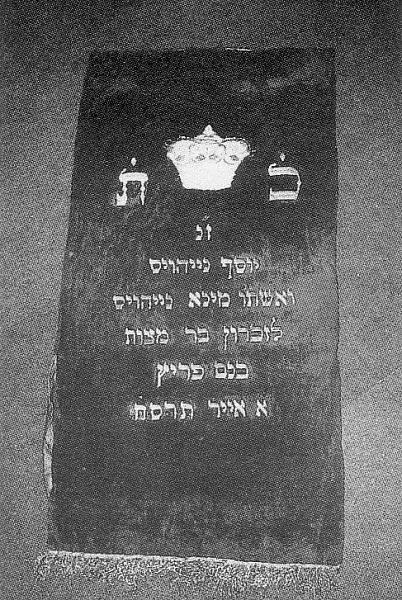 כ ת
ז"נ
יוסף נייהויס
ואשתו מינא נייהויס
לזכרון בר מצות
בנם פריץ
א אייר תרסח